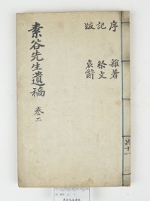 素谷先生遺稿 卷二
序 雜著
記 祭文
跋 哀辭